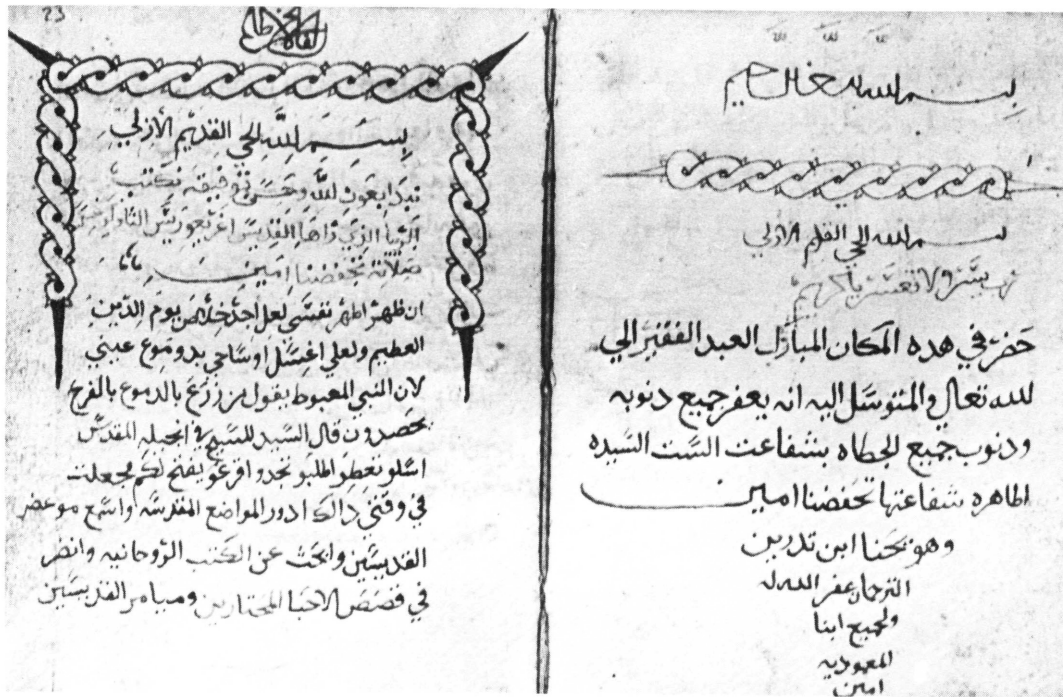 بسم الله الرحمن الرحيم
بسم الله الحي القديم الازلي
رب يسر ولا تعسر يا كريم
حضر في هده المكان المبارك العبد الفقير الي
لله تعالي والمتوسل اليه انه يغفر جميع دنوبه
ودنوب جميع الخطاه بشفاعت الست السيده
الطاهره شفاعتها تحفضنا امين
وهو يحنا ابن تدرس
الترجمان غفر الله له
ولجميع ابنا
المعموديه
امين
23
بسم الله الحي القديم الأزلي
نبتدا بعون الله وحسن توفيقه نكتب
الرويا الذي راها القديس اغريغوريوس
صلاته تحفضنا امين
ان ظهر اطهر نفسي لعل أجد خلاص يوم الدين
العظيم ولعلي اغسل اوساخي بدموع عيني
لان النبي المغبوط يقول من زرع بالدموع بالفرح
يحصدون قال السيد المسيح في انجيله المقدس
اسلو تعطو اطلبو تجدو اقرعو يفتح لكم فجعلت
في وقتي دالك ادور المواضع المقدسه واسمع موعض
القديسين وابحث عن الكتب الروحانيه وانضر
في قصص الاحبا المختارين وميامر القديسين